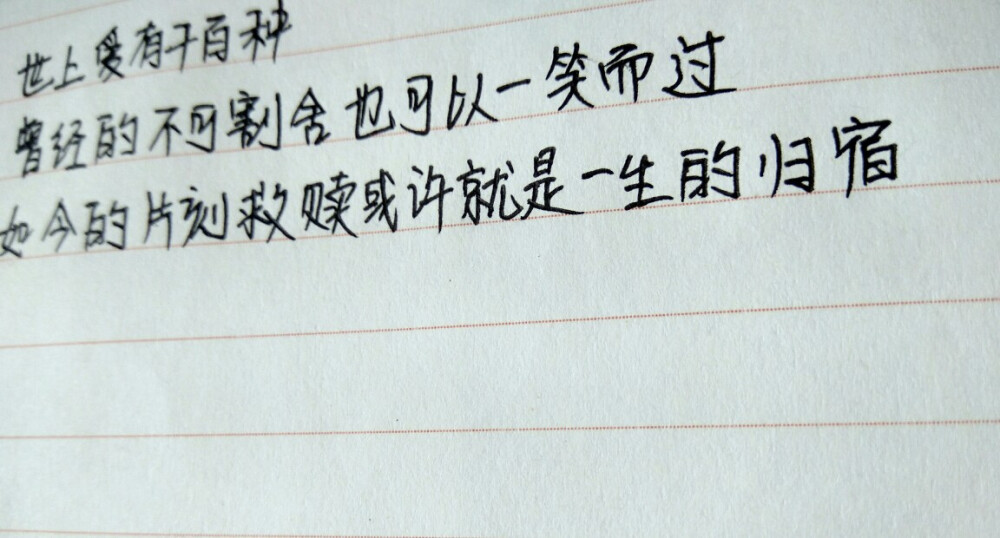 世上爱有千百种
曾经的不可割舍也可以一笑而过
如今的片刻救赎或许就是一生的归宿